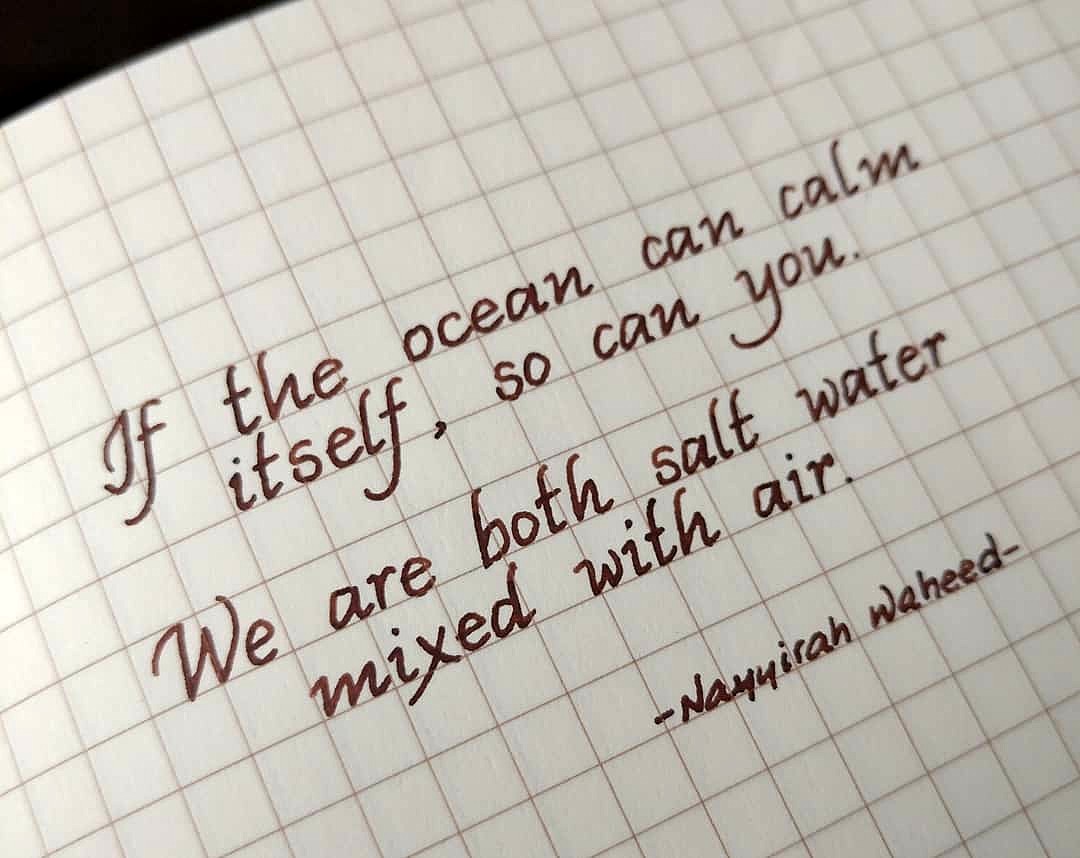 If the ocean can calm
itself, so can you.
We are both salt water
mixed with air.
-Nayyirah Waheed-